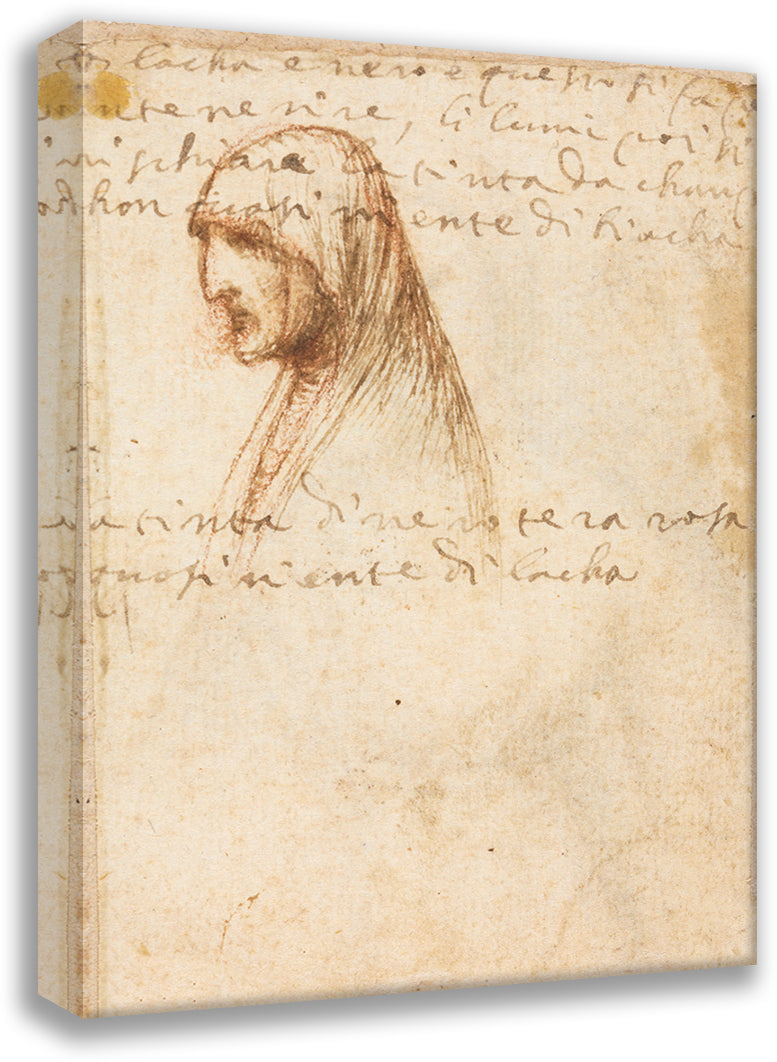 di lacha e nero e questo si fa
ntenerire, li lumi poi si
schiare la tinta da chang
chon quasi niente di biacha
la tinta di nero tera rosa
quasi niente di lacha